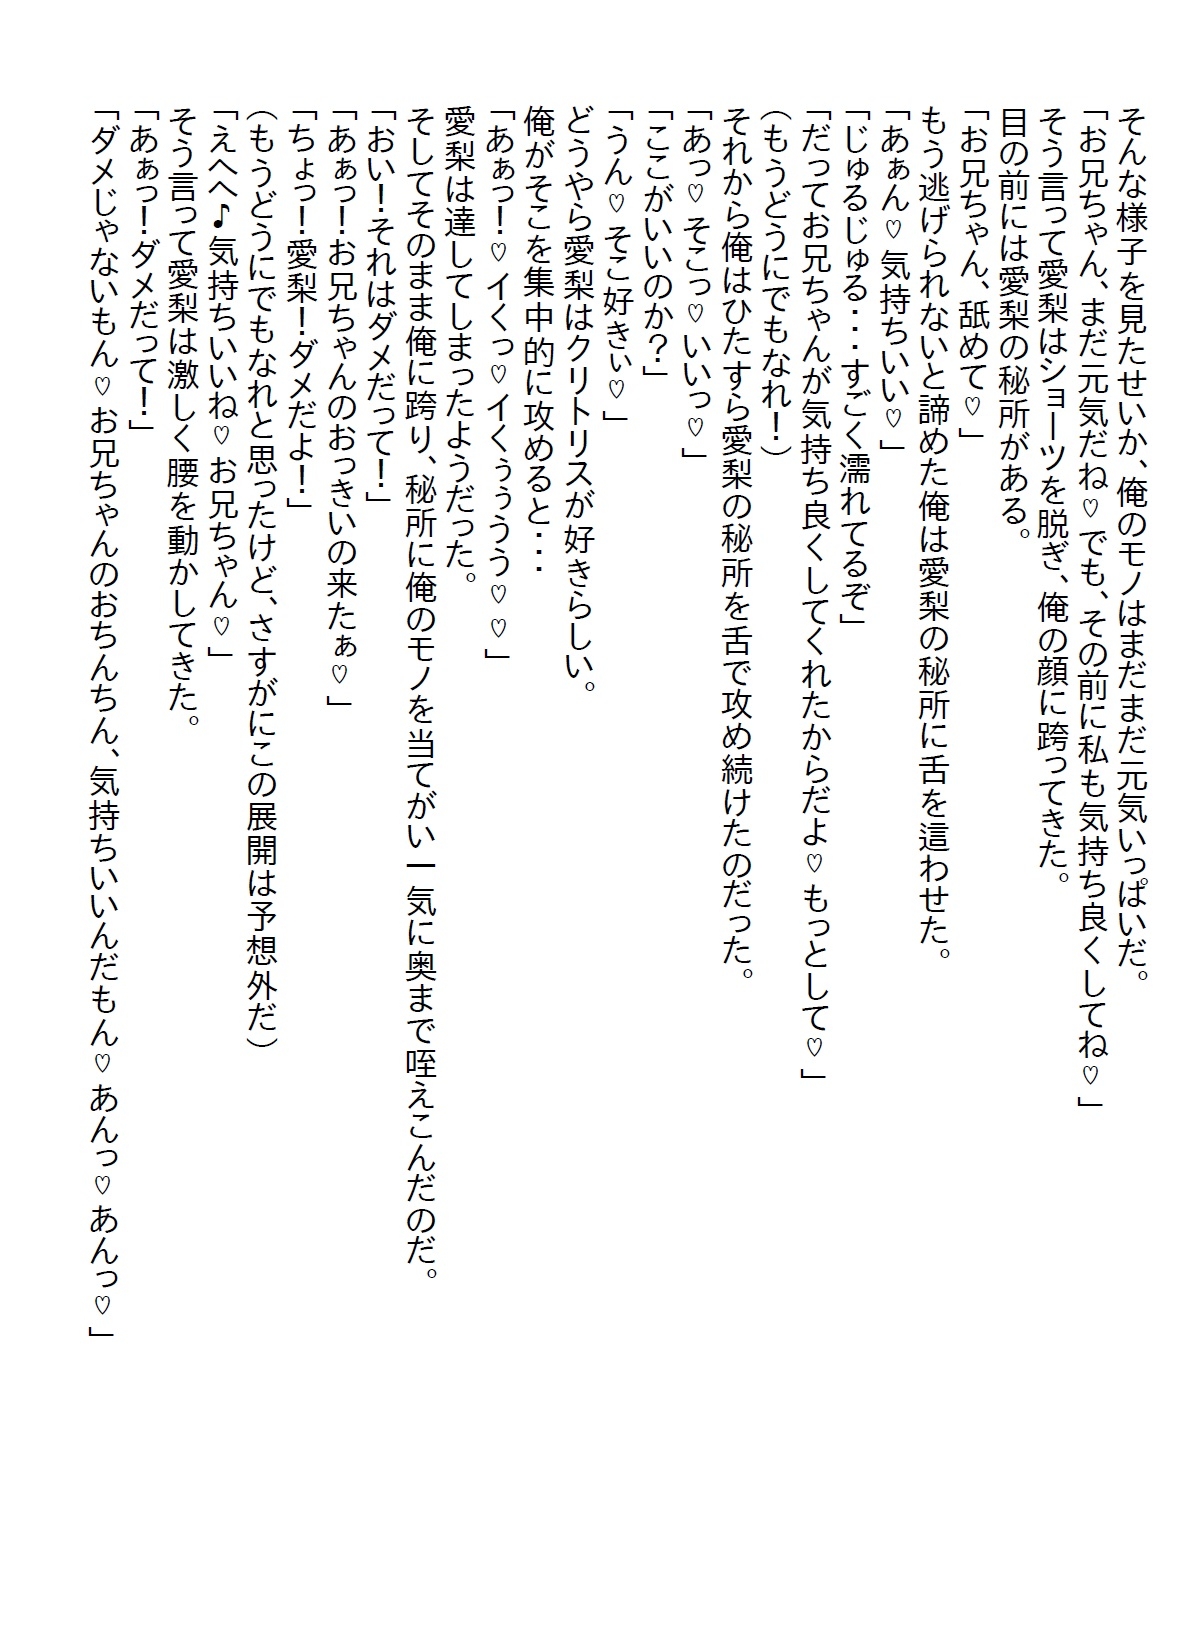 そんな様子を見たせいか、俺のモノはまだまだ元気いっぱいだ。
「お兄ちゃん、まだ元気だね♡でも、その前に私も気持ち良くしてね♡」
そう言って愛梨はショーツを脱ぎ、俺の顔に跨ってきた。
目の前には愛梨の秘所がある。
「お兄ちゃん、舐めて♡」
もう逃げられないと諦めた俺は愛梨の秘所に舌を這わせた。
「あぁん♡気持ちいい♡」
「じゅるじゅる・・・すごく濡れてるぞ」
「だってお兄ちゃんが気持ち良くしてくれたからだよ♡もっとして♡」
（もうどうにでもなれ！）
それから俺はひたすら愛梨の秘所を舌で攻め続けたのだった。
「あっ♡そこっ♡いいっ♡」
「ここがいいのか？」
「うん♡そこ好きぃ♡」
どうやら愛梨はクリトリスが好きらしい。
俺がそこを集中的に攻めると・・・
「あぁっ！♡イくっ♡イくぅぅうう♡♡」
愛梨は達してしまったようだった。
そしてそのまま俺に跨り、秘所に俺のモノを当てがい一気に奥まで咥えこんだのだ。
「おい！それはダメだって！」
「あぁっ！お兄ちゃんのおっきいの来たぁ♡」
「ちょっ！愛梨！ダメだよ！」
（もうどうにでもなれと思ったけど、さすがにこの展開は予想外だ）
「えへへ♪気持ちいいね♡お兄ちゃん♡」
そう言って愛梨は激しく腰を動かしてきた。
「あぁっ！ダメだって！」
「ダメじゃないもん♡お兄ちゃんのおちんちん、気持ちいいんだもん♡あんっ♡あんっ♡」